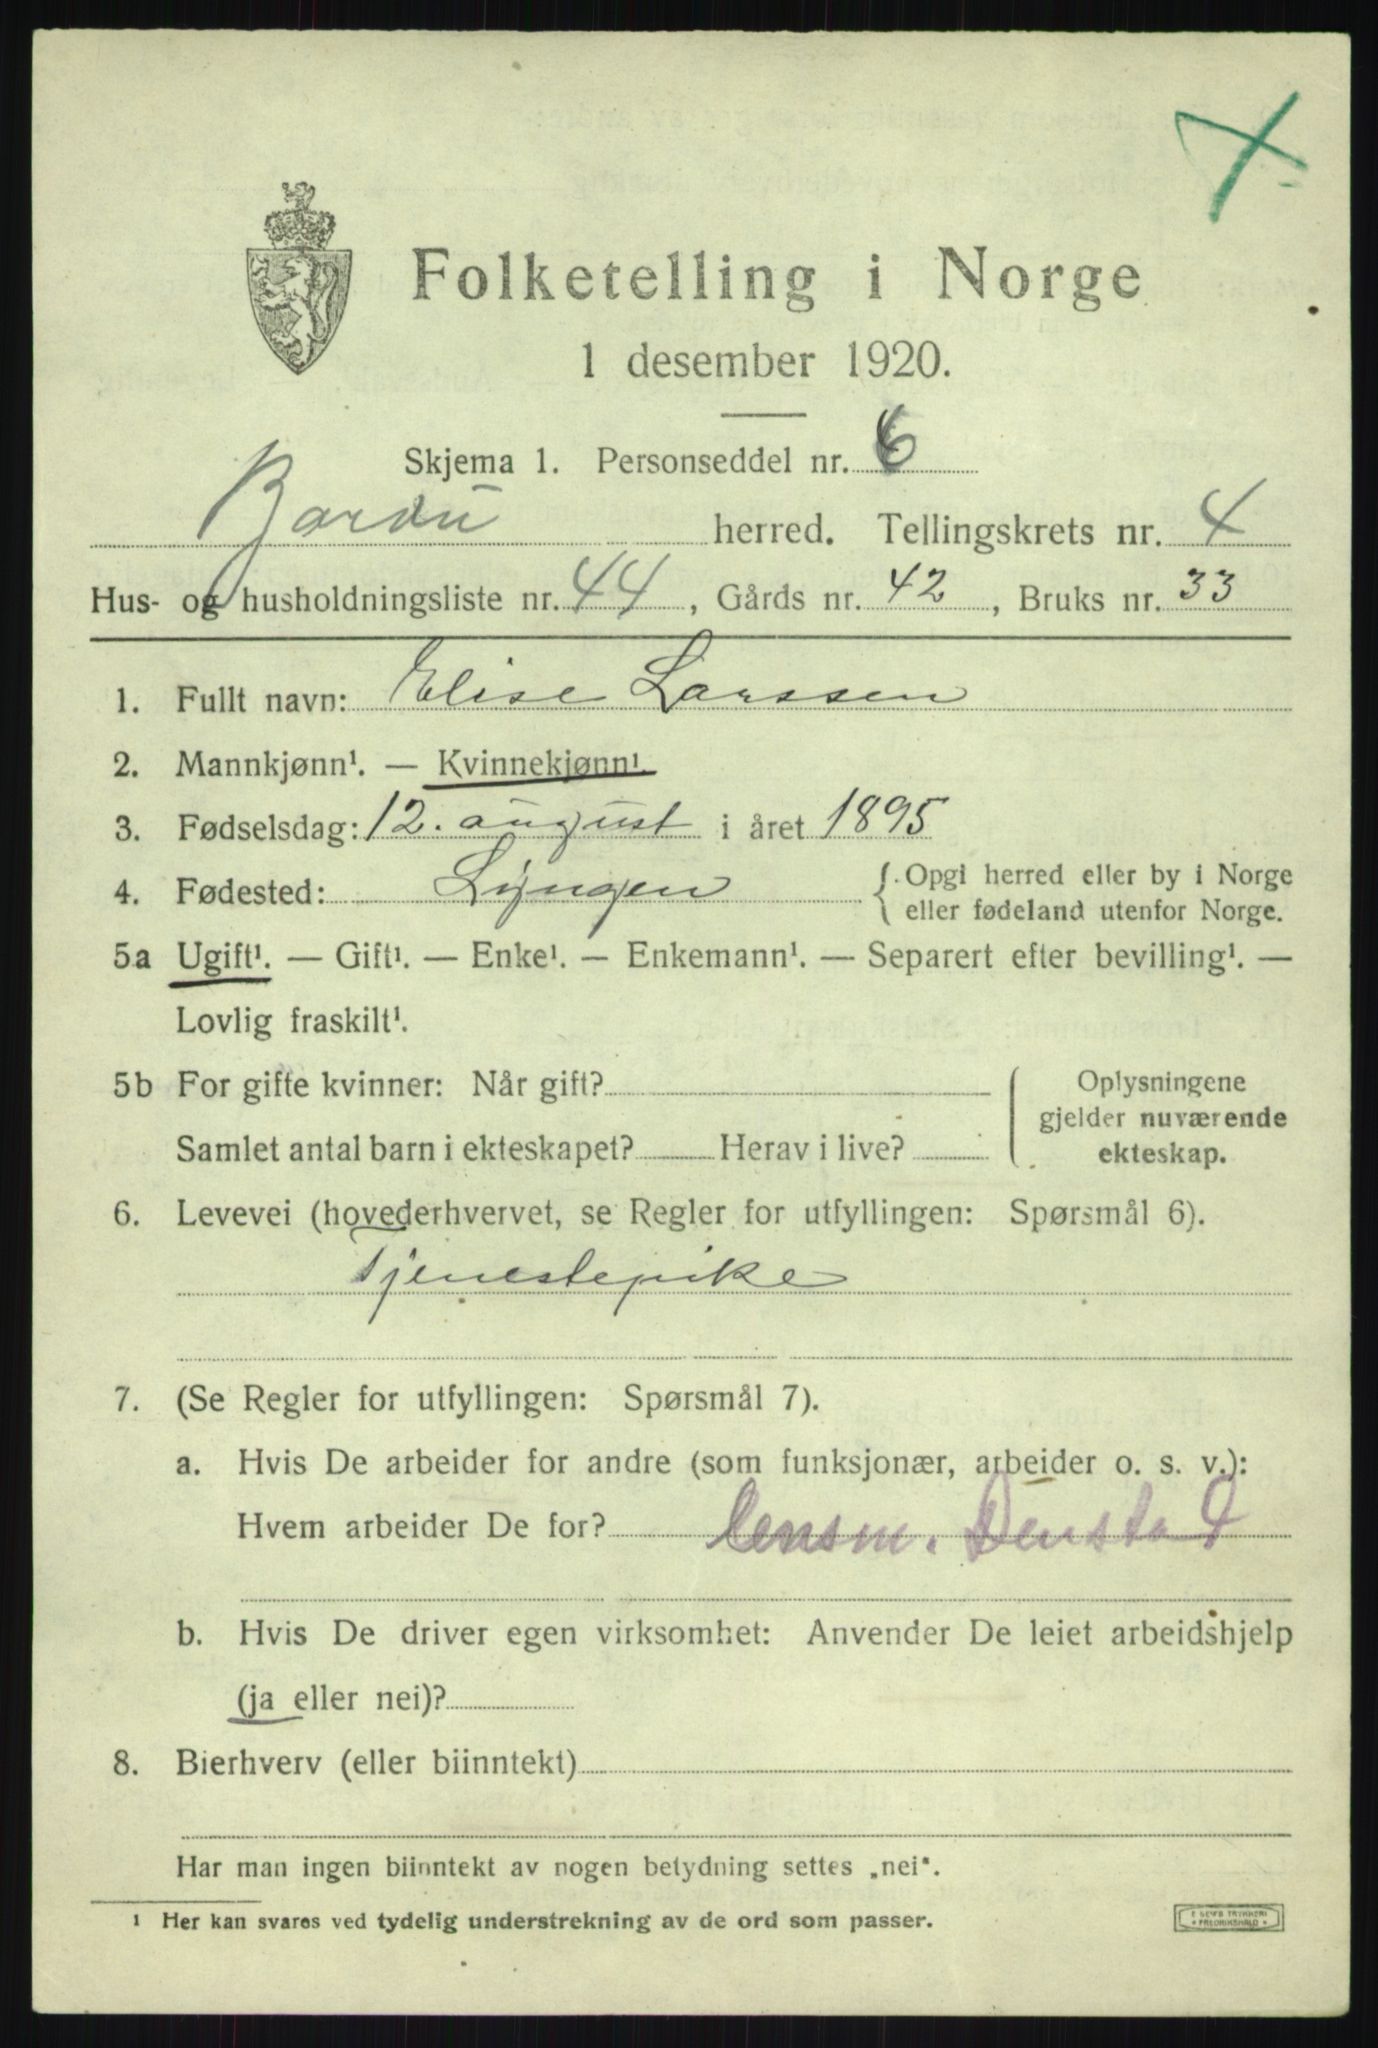 Folketelling i Norge
1 desember 1920.
Skjema 1. Personseddel nr. 6
Bardu herred. Tellingskrets nr. 4
Hus- og husholdningsliste nr. 44, Gårds nr. 42, Bruks nr. 33
1. Fullt navn: Elise Larssen
2. Mannkjønn¹. — Kvinnekjønn¹.
3. Fødselsdag: 12. august i året 1895
4. Fødested: Lyngen { Opgi herred eller by i Norge
eller fødeland utenfor Norge.
5a Ugift¹. — Gift¹. — Enke¹. — Enkemann¹. — Separert efter bevilling¹. —
Lovlig fraskilt¹.
5b For gifte kvinner: Når gift?
Samlet antal barn i ekteskapet? Herav i live?
Oplysningene
gjelder nuværende
ekteskap.
6. Levevei (hovederhvervet, se Regler for utfyllingen: Spørsmål 6).
Tjenestepike
7. (Se Regler for utfyllingen: Spørsmål 7).
a. Hvis De arbeider for andre (som funksjonær, arbeider o. s. v.):
Hvem arbeider De for? Lensm. Denstad
b. Hvis De driver egen virksomhet: Anvender De leiet arbeidshjelp
(ja eller nei)?
8. Bierhverv (eller biinntekt)
Har man ingen biinntekt av nogen betydning settes „nei".
¹ Her kan svares ved tydelig understrekning av de ord som passer.
E SEM'S TRYKKERI
FREDRIKSHALD